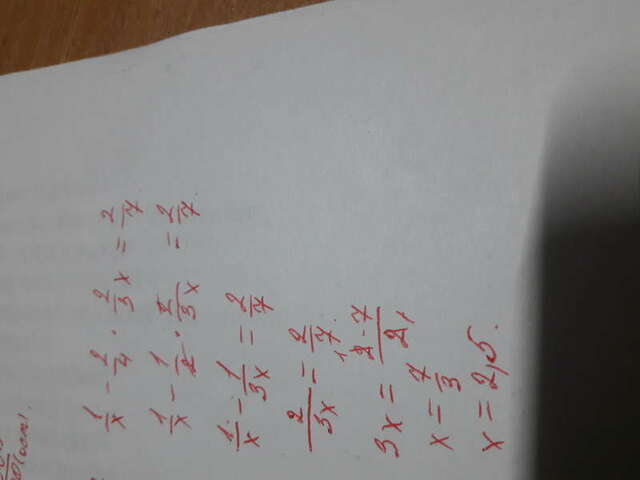 (ост).
1/x - 2/4 · 2/3 x = 2/7
1/x - 1/2 · 2/3x = 2/7
1/x - 1/3x = 2/7
2/3x = 2/7
3x = 2·7/2
x = 7/3
x = 2,5.